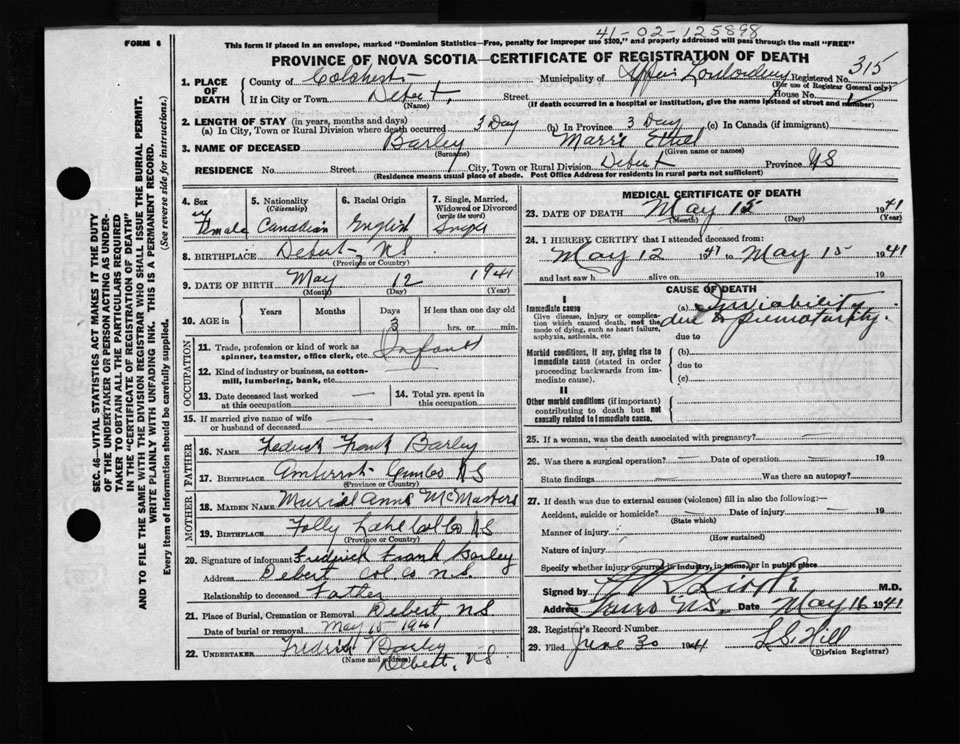 41-02-125898
FORM 6
This form if placed in an envelope, marked "Dominion Statistics—Free, penalty for improper use $300," and properly addressed will pass through the mail "FREE"
PROVINCE OF NOVA SCOTIA—CERTIFICATE OF REGISTRATION OF DEATH
SEC. 46—VITAL STATISTICS ACT MAKES IT THE DUTY
OF THE UNDERTAKER OR PERSON ACTING AS UNDER-
TAKER TO OBTAIN ALL THE PARTICULARS REQUIRED
IN THE "CERTIFICATE OF REGISTRATION OF DEATH"
AND TO FILE THE SAME WITH THE DIVISION REGISTRAR WHO SHALL ISSUE THE BURIAL PERMIT.
WRITE PLAINLY WITH UNFADING INK. THIS IS A PERMANENT RECORD.
Every item of information should be carefully supplied. (See reverse side for instructions.)
1. PLACE OF DEATH
County of Colchester Municipality of Registered No. 315
(For use of Registrar General only)
If in City or Town Debert, Street House No.
(Name) (If death occurred in a hospital or institution, give the name instead of street and number)
2. LENGTH OF STAY (in years, months and days)
(a) In City, Town or Rural Division where death occurred 3 Day (b) In Province 3 Day (c) In Canada (if immigrant)
3. NAME OF DECEASED Barley Ethel
(Surname) (Given name or names)
RESIDENCE No. Street City, Town or Rural Division Debert Province NS
(Residence means usual place of abode. Post Office Address for residents in rural parts not sufficient)
4. Sex Female
5. Nationality (Citizenship) Canadian
6. Racial Origin English
7. Single, Married, Widowed or Divorced (write the word) Single
8. BIRTHPLACE Debert NS
(Province or Country)
9. DATE OF BIRTH May 12 1941
(Month) (Day) (Year)
10. AGE in Years Months Days 3 If less than one day old hrs. or min.
OCCUPATION
11. Trade, profession or kind of work as spinner, teamster, office clerk, etc. Infant
12. Kind of industry or business, as cotton-mill, lumbering, bank, etc.
13. Date deceased last worked at this occupation —
14. Total yrs. spent in this occupation
15. If married give name of wife or husband of deceased —
FATHER
16. NAME Fedrick Frank Barley
17. BIRTHPLACE Amherst NS
(Province or Country)
MOTHER
18. MAIDEN NAME Muriel Anne McMasters
19. BIRTHPLACE Folly Lake Col Co NS
(Province or Country)
20. Signature of informant Frederick Frank Barley
Address Debert Col. Co N.S.
Relationship to deceased Father
21. Place of Burial, Cremation or Removal Debert NS
Date of burial or removal May 15 1941
22. UNDERTAKER Fredrick Barley
(Name and address) Debert, NS
MEDICAL CERTIFICATE OF DEATH
23. DATE OF DEATH May 15 1941
(Month) (Day) (Year)
24. I HEREBY CERTIFY that I attended deceased from:
May 12 1941 to May 15 1941
and last saw h alive on 19
CAUSE OF DEATH
I
Immediate cause
Give disease, injury or complication which caused death, not the mode of dying, such as heart failure, asphyxia, asthenia, etc
(a) Inviability
due to prematurity.
due to
Morbid conditions, if any, giving rise to immediate cause (stated in order proceeding backwards from immediate cause).
(b)
due to
(c)
II
Other morbid conditions (if important) contributing to death but not causally related to immediate cause.
25. If a woman, was the death associated with pregnancy? —
26. Was there a surgical operation? — Date of operation — 19
State findings — Was there an autopsy?
27. If death was due to external causes (violence) fill in also the following:—
Accident, suicide or homicide? — Date of injury — 19
(State which)
Manner of injury
(How sustained)
Nature of injury
Specify whether injury occurred in industry, in home, or in public place
Signed by M.D.
Address Truro N.S. Date May 16 1941
28. Registrar's Record Number
29. Filed June 30 1941 L.S. Hill
(Division Registrar)